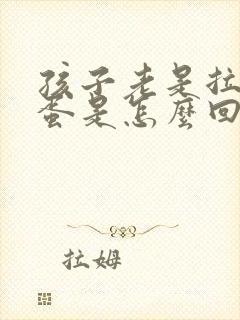 孩子老是拉
蛋是怎麼回
拉姆